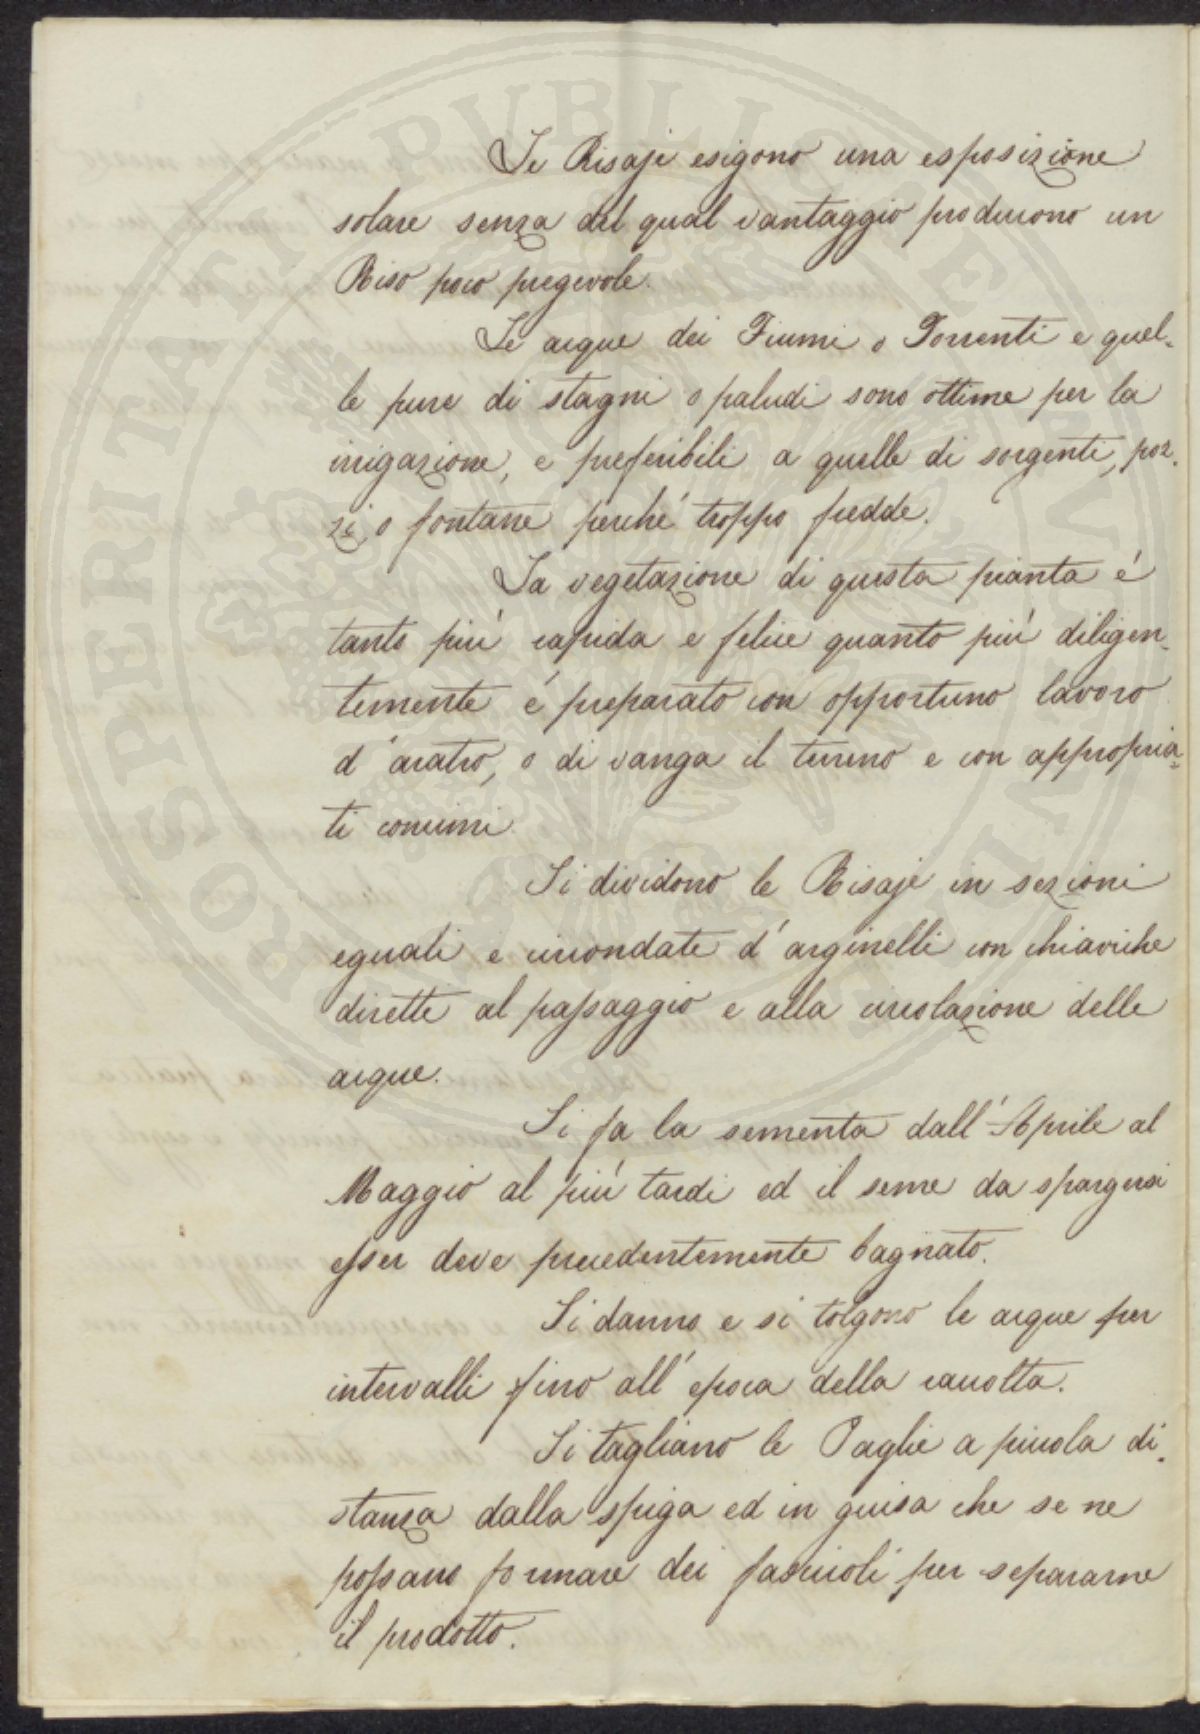 Le Risaje esigono una esposizione
solare senza del qual vantaggio producono un
Riso poco pregevole.
Le acque dei Fiumi o Torrenti e quel-
le pure di stagni o paludi sono ottime per la
irrigazione, e preferibili a quelle di sorgenti, poz-
zi, o fontane perché troppo fredde.
La vegetazione di questa pianta é
tanto piú rapida e felice quanto piú diligen-
temente é preparato con opportuno lavoro
d'aratro, o di vanga il terreno e con appropria-
ti concimi
Si dividono le Risaje in sezioni
eguali e circondate d'arginelli con chiaviche
dirette al passaggio e alla circolazione delle
acque.
Si fa la sementa dall'Aprile al
Maggio al piú tardi ed il seme da spargersi
esser deve precedentemente bagnato.
Si danno e si tolgono le acque per
intervalli fino all'epoca della raccolta.
Si tagliano le Paglie a piccola di-
stanza dalla spiga ed in guisa che se ne
possano formare dei fascicoli per separarne
il prodotto.
PROSPERITATI PUBLICAE AUGENDAE